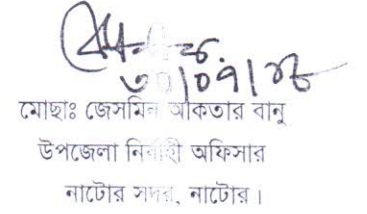 ৩০/০৭/১৮
মোছাঃ জেসমিন আকতার বানু
উপজেলা নির্বাহী অফিসার
নাটোর সদর, নাটোর।